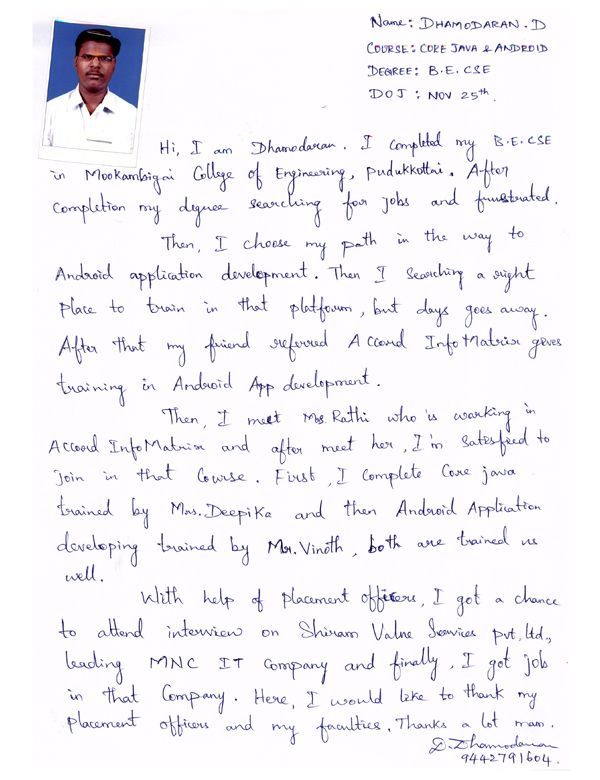 Name: DHAMODARAN.D
COURSE: CORE JAVA & ANDROID
DEGREE: B.E. CSE
DOJ: NOV 25th.
Hi, I am Dhamodaran. I completed my B.E.CSE
in Mookambigai College of Engineering, Pudukkottai. After
completion my degree searching for jobs and frustrated.
Then, I choose my path in the way to
Android application development. Then I searching a right
place to train in that platform, but days goes away.
After that my friend referred Accord InfoMatrix gives
training in Android App development.
Then, I meet Mrs. Rathi who is working in
Accord InfoMatrix and after meet her, I'm satisfied to
join in that course. First, I complete Core java
trained by Mrs. Deepika and then Android Application
developing trained by Mr. Vinoth, both are trained us
well.
With help of placement officers, I got a chance
to attend interview on Shriram Value Services pvt. ltd.,
leading MNC IT company and finally, I got job
in that company. Here, I would like to thank my
placement officers and my faculties. Thanks a lot mam.
D. Dhamodaran
9442791604.